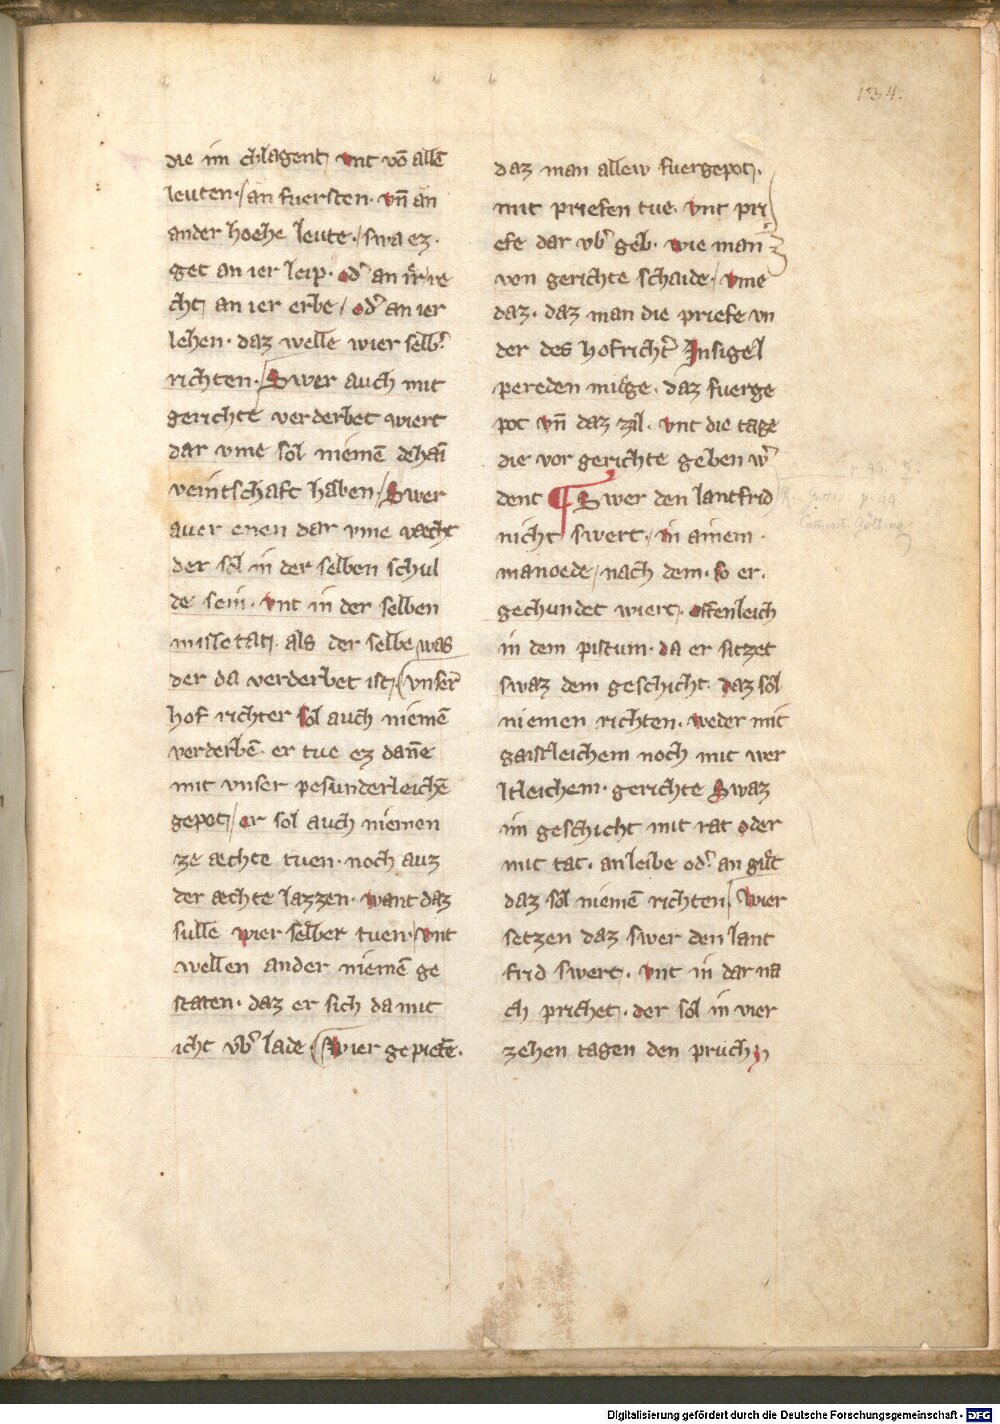 134.
die im chlagent, vnt vō allē
leuten. an fuersten. vn̄ an
ander hoehe leute. swa ez.
get an ier leip. od' an ir re
cht, an ier erbe, od' an ier
lehen. daz welle wier selb'
richten. Swer auch mit
gerichte verderbet wiert
dar vme sol niemē dehai
veintschaft haben. Swer
auer enen dar vme væcht
der sol in der selben schul
de sein. vnt in der selben
missetat. als der selbe was
der da verderbet ist, vnser
hof richter sol auch niemē
verderbē. er tue ez dan̄e
mit vnser pesunderleichē
gepot, er sol auch niemen
ze æchte tuen. noch auz
der æchte lazzen. want daz
sulle wier selber tuen. vnt
wellen ander niemē ge
staten. daz er sich da mit
icht vb' lade. Wier gepietē.
daz man allew fuergepot.
mit priefen tue. vnt pri
efe dar vb' geb. wie man
von gerichte schaide. vme
daz. daz man die priefe vn
der des hofricht' Insigel
pereden muge. daz fuerge
pot vn̄ daz zil. vnt die tage
die vor gerichte geben w'
dent ¶ Swer den lantfrid
nicht swert. in ainem.
manoede, nach dem. so er.
gechundet wiert. offenleich
in dem pistum. da er sitzet
swaz dem geschicht. daz sol
niemen richten. weder mit
gaistleichem noch mit wer
ltleichem. gerichte Swaz
im geschicht mit rat oder
mit tat. an leibe od' an guͦt
daz sol niemē richten. Wier
setzen daz swer den lant
frid swert. vnt in dar na
ch prichet. der sol in vier
zehen tagen den pruch
Digitalisierung gefördert durch die Deutsche Forschungsgemeinschaft - DFG